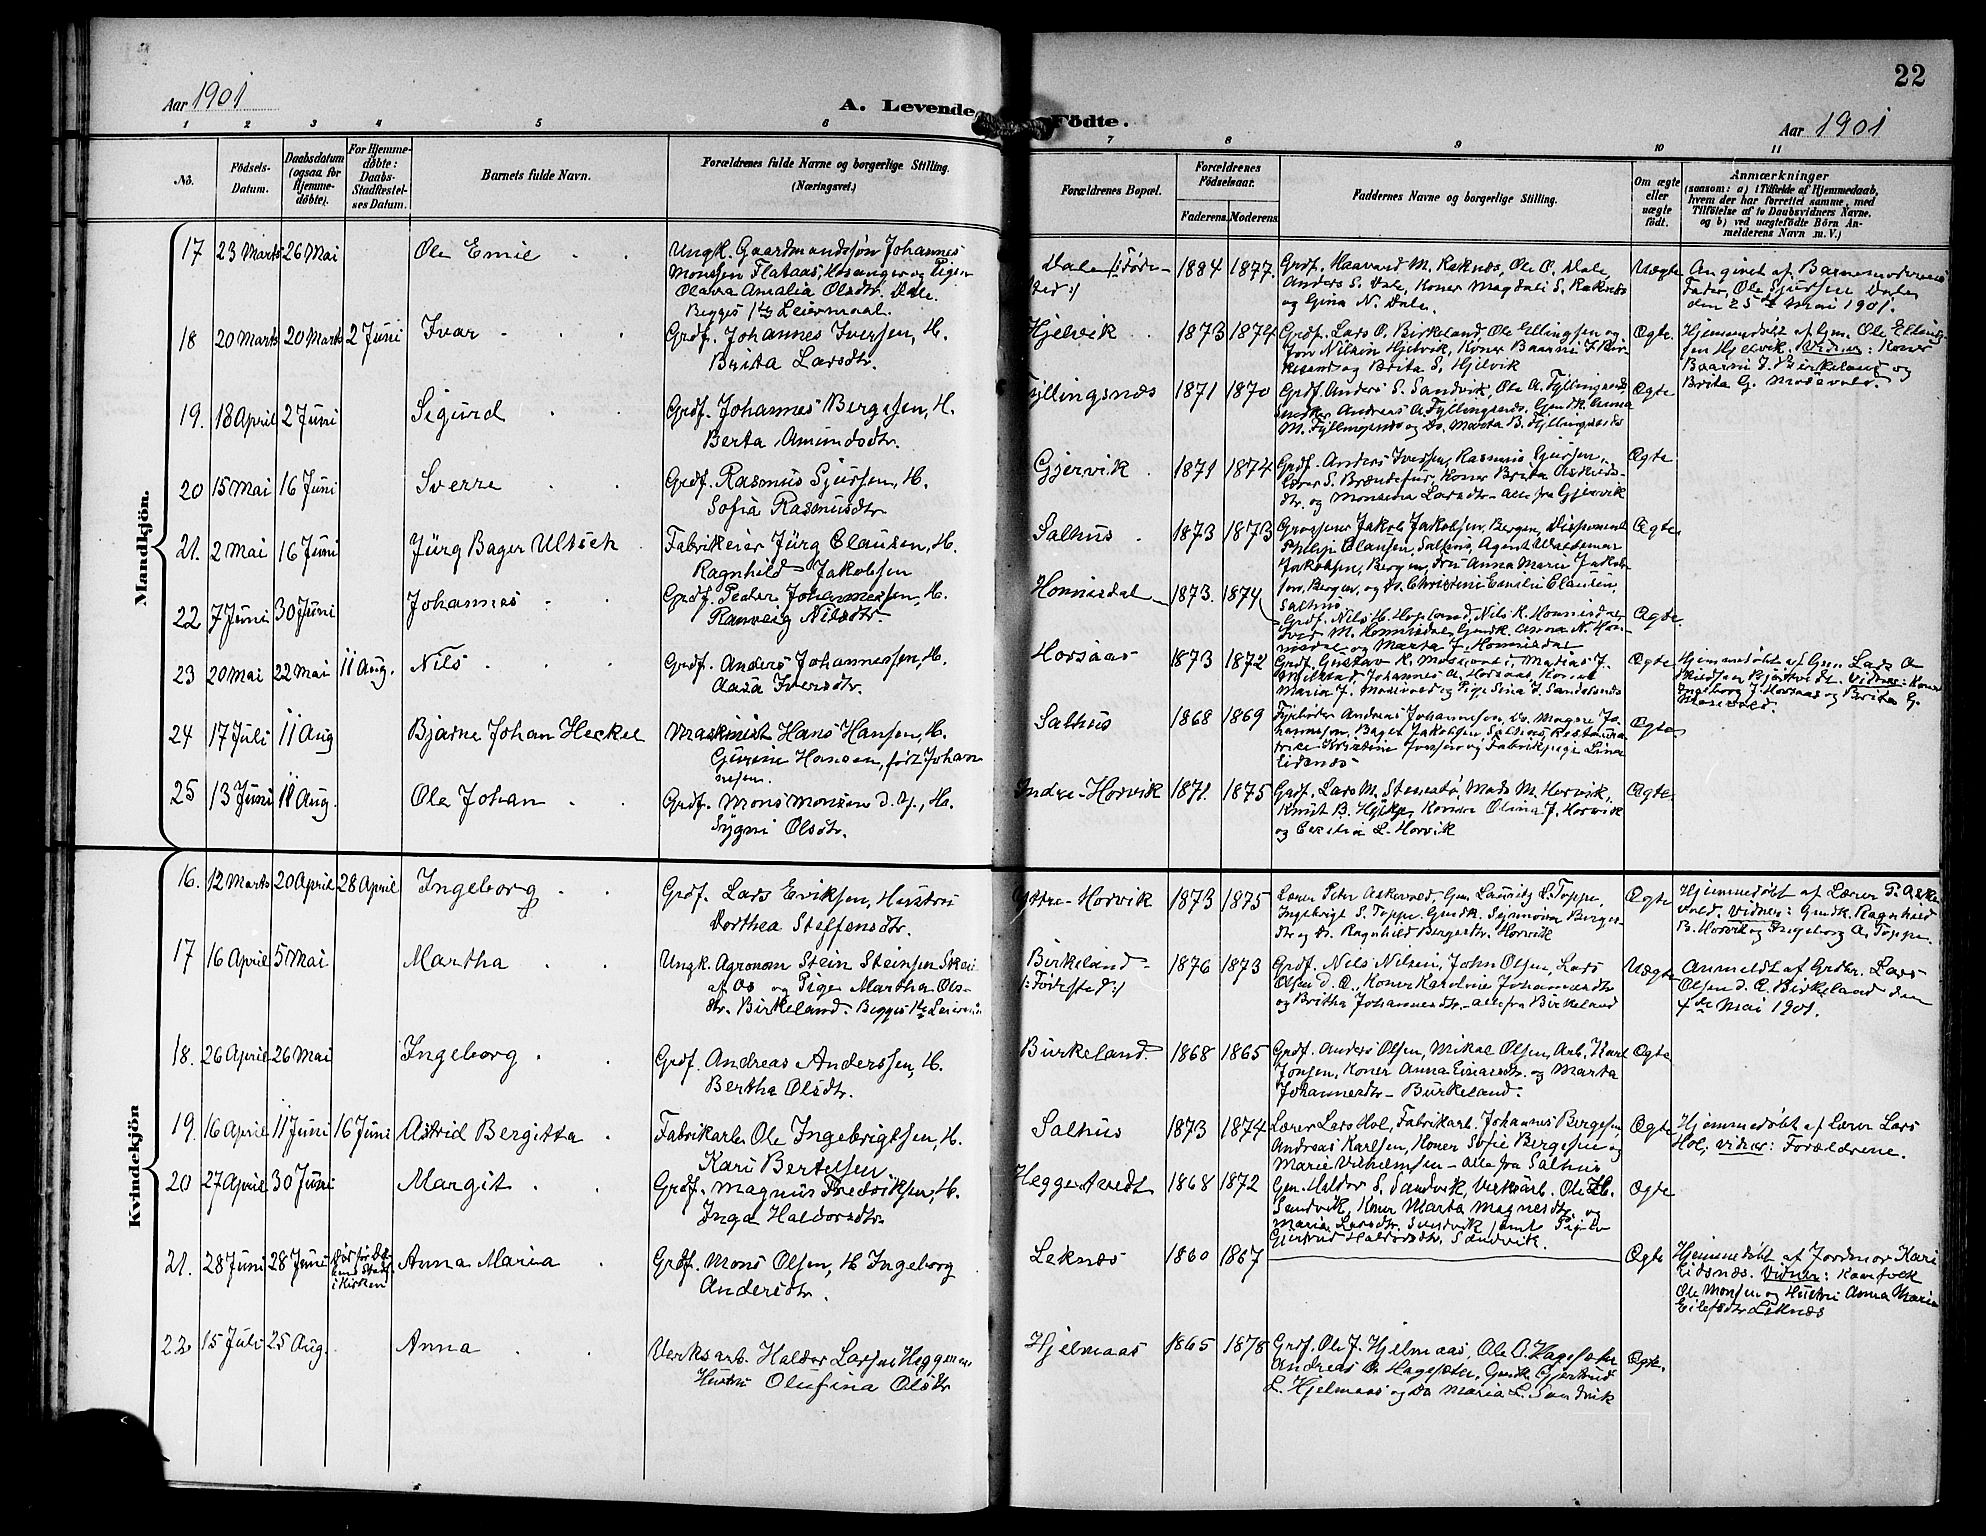 22
Aar 1901
A. Levende Födte.
Aar 1901
1 2 3 4 5 6 7 8 9 10 11
No.
Födsels-Datum.
Daabsdatum (ogsaa for Hjemmedöbte).
For Hjemmedöbte: Daabs-Stadfæstelses Datum.
Barnets fulde Navn.
Forældrenes fulde Navne og borgerlige Stilling.
(Næringsvei.)
Forældrenes Bopæl.
Forældrenes Födselsaar.
Faderens. Moderens.
Faddernes Navne og borgerlige Stilling.
Om ægte eller uægte födt.
Anmærkninger
(saasom: a) i Tilfælde af Hjemmedaab,
hvem der har forrettet samme, med
Tilföielse af to Daabsvidners Navne.
og b) ved uægtefödte Börn An-
melderens Navn m. V.)
Mandkjön.
17 23 Marts 26 Mai Ole Emil
Ungk. Gaardmandssøn Johannes
Monssen Flataas, Hosanger og Pigen
Olava Amalia Olsdtr. Dale.
Begges 1ste Leiermaal.
Dale /: Føde-
sted :/
1884 1877.
Grdf. Haavard M. Raknæs, Ole O. Dale,
Anders S. Dale, Koner Magdali S. Raknæs
og Gina N. Dale.
Uægte
Angivet af Barnemoderens
Fader, Ole Sjursen Dale
den 25de Mai 1901.
18 20 Marts 20 Marts 2 Juni Ivar
Grdf. Johannes Iversen, H.
Brita Larsdtr.
Hjelvik 1873 1874
Grdf. Lars O. Birkeland, Ole Ellingsen og
Jon Nilsen Hjelvik, Koner Baarni J. Bir-
keland og Brita S. Hjelvik
Ægte
Hjemmedøbt af Gm. Ole Elling-
sen Hjelvik. Vidner: Koner
Baarni J. Birkeland og
Brita G. Mosevold.
19. 18 April 2 Juni Sigurd
Grdf. Johannes Bergesen, H.
Berta Amundsdtr.
Fyllingsnæs 1871 1870
Grdf. Anders S. Sandvik, Ole A. Fyllingsnæs,
Andreas A. Fyllingsnæs. Gmdk. Anna
M. Fyllingsnæs og Do. Marta B. Fyllingsnæs
Ægte
20 15 Mai 16 Juni Sverre
Grdf. Rasmus Sjursen, H.
Sofia Rasmusdtr
Gjervik 1871 1874
Grdf. Anders Iversen, Rasmus Sjursen,
S. Brændefur, Koner Brita
dtr. og Monsina Larsdtr - alle fra Gjervik
Ægte
21. 2 Mai 16 Juni Jürg Bager Ultsch
Fabrikeier Jürg Clausen, H.
Ragnhild Jakobsen
Salhus 1873 1873
Grosserer Jakob Jakobsen, Bergen, Disponent
Philip Clausen, Salhus, Agent Waldemar
Jakobsen, Bergen, Fru Anna Marie Jakob-
sen, Bergen, og Do. Christine Emilie Clausen,
Salhus
Ægte
22 7 Juni 30 Juni Johannes
Grdf. Peder Johannessen, H.
Ranveig Nilsdtr
Honnisdal 1873. 1874
Grdf. Nils H. Hopland, Nils K. Honnisdal,
M. Honnisdal, Gmdk. Anna N. Hon-
nisdal og Marta J. Honnisdal
Ægte.
23 20 Mai 22 Mai 11 Aug. Nils
Grdf. Anders Johannessen, H.
Aasa Iversdtr.
Horsaas 1873 1872
Grdf. Gustav K. Mosevold, Matias J.
Mjelstad, Johannes A. Horsaas, Koner
Maria J. Mosevold og Pige Sina J. Sandsnæs
Ægte
Hjemmedøbt af Gm. Lars A
Vidner: Koner
Ingeborg J. Horsaas og Brita G.
Mosevold.
24 17 Juli 11 Aug Bjarne Johan Heckel
Maskinist Hans Hansen, H.
Gurine Hansen, født Johan
nesen.
Salhus 1868 1869
Fyrbøter Andreas Johannesen, Do. Magne Jo-
hannesen, Bager Jakobsen, Salhus,
Kristine Iversen og Fabrikpige Lina
Eidsnæs
Ægte
25 13 Juni 11 Aug. Ole Johan
Grdf. Mons Monsen d. y., H.
Sygni Olsdtr.
Indre-Horvik 1871. 1875
Grdf. Lars M. Stenestø, Mads M. Horvik,
Knut B. Koner Olina J. Horvik
og Cecilia L. Horvik
Ægte.
Kvindekjön
16. 12 Marts 20 April 28 April Ingeborg
Grdf. Lars Eriksen, Hustru
Dorthea Steffensdtr.
Yttre-Horvik 1873 1875
Lærer Peter Askevold, Gm. Lauritz L. Toppe,
Ingebrigt S. Toppe. Gmdk. Synnøva Berges-
dtr og Do. Ragnhild Bergesdtr. Horvik
Ægte
Hjemmedøbt af Lærer P. Aske-
vold. Vidner: Gmdk. Ragnhild
B. Horvik og Ingeborg A. Toppe.
17 16 April 5 Mai Martha
Ungk. Agronom Stein Steinsen Skeie
af Os og Pige Martha Ols-
dtr. Birkeland. Begges 1ste Leiermaal
Birkeland
/: Fødested :/
1876 1873
Grdf. Nils Nilsen, John Olsen, Lars
Olsen d. Æ. Koner Karoline Johannesdtr
og Britha Johannesdtr - alle fra Birkeland
Uægte
Anmeldt af Grdbr. Lars
Olsen d. Æ. Birkeland den
4de Mai 1901.
18. 26 April 26 Mai Ingeborg
Grdf. Andreas Anderssen, H.
Bertha Olsdtr.
Birkeland. 1868 1865
Grdf. Anders Olsen, Mikal Olsen, Arb. Karl
Jonsen, Koner Anna Einarsdtr. og Marta
Johannesdtr - Birkeland.
Ægte
19. 16 April 11 Juni 16 Juni Astrid Bergitta
Fabrikarb. Ole Ingebrigtsen, H.
Kari Bertelsen
Salhus 1873 1874
Lærer Lars Hol, Fabrikarb. Johannes Bergesen,
Andreas Karlsen, Koner Sofie Bergesen og
Marie Vilhelmsen - alle fra Salhus
Ægte
Hjemmedøbt af Lærer Lars
Hol; vidner: Forældrene.
20 27 April 30 Juni Margit
Grdf. Magnus Fredriksen, H.
Inga Haldorsdtr
Heggertvedt 1868 1872
Gm. Haldor S. Sandvik, Verksarb. Ole H.
Sandvik, Koner Marta Magnesdtr og
Maria Larsdtr. Sandvik samt Pige
Gjertrud Haldorsdtr, Sandvik.
Ægte
21. 28 Juni 28 Juni Død før Daa-
bens Stadf.
i Kirken
Anna Maria
Grdf. Mons Olsen, H Ingeborg
Andersdtr.
Leknæs 1860 1867
Ægte
Hjemmedøbt af Jordmor Kari
Eidsnæs. Vidner: Kaarfolk
Ole Monsen og Hustru Anna Maria
Eilefsdtr Leknæs
22 15 Juli 25 Aug. Anna
Verksarb. Haldor Larsen Heggernæs
Hustru Olufina Olsdtr
Hjelmaas 1865 1878
Grdf. Ole J. Hjelmaas, Ole O. Hagesæter
Andreas O. Hagesæter, Gmdk Gjertrud
L. Hjelmaas og Do Maria L. Sandvik
Ægte.